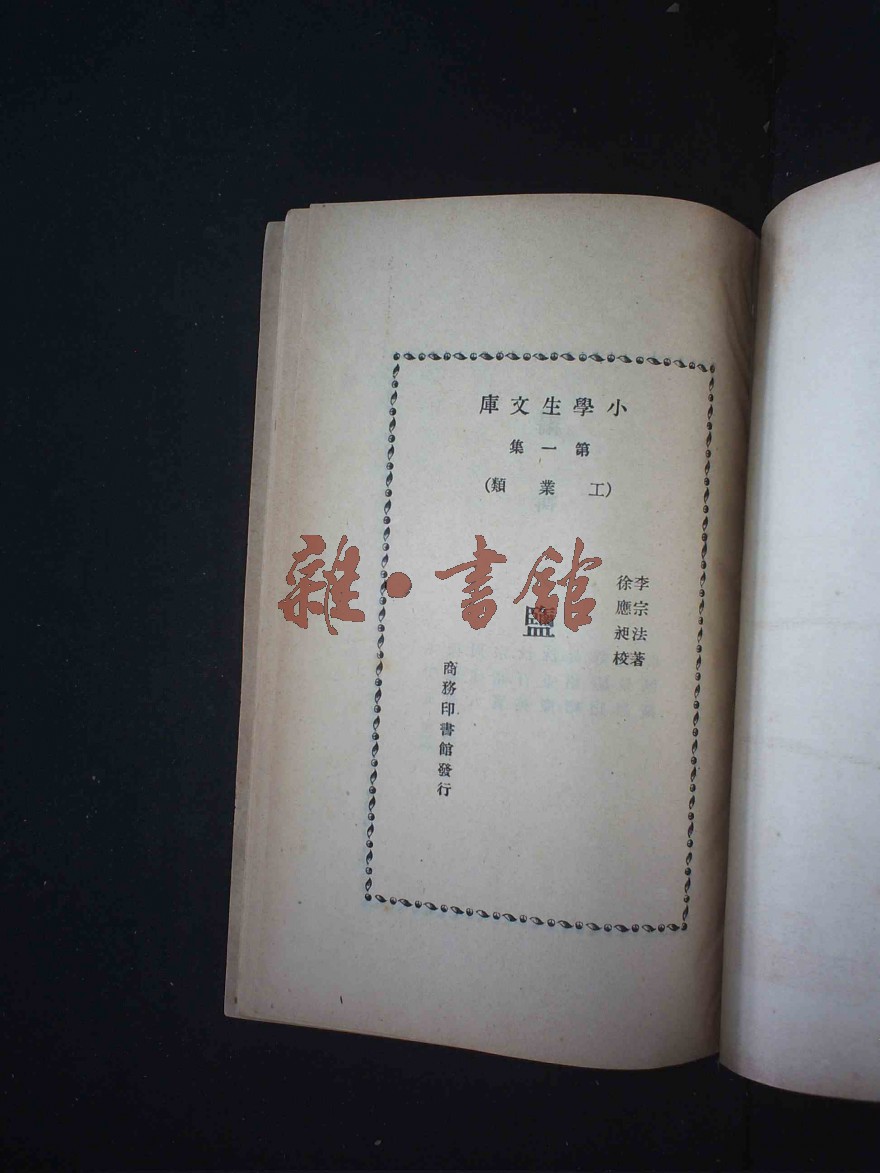 小學生文庫
第一集
(工業類)
李宗法著
徐應昶校
鹽
商務印書館發行
雜·書館